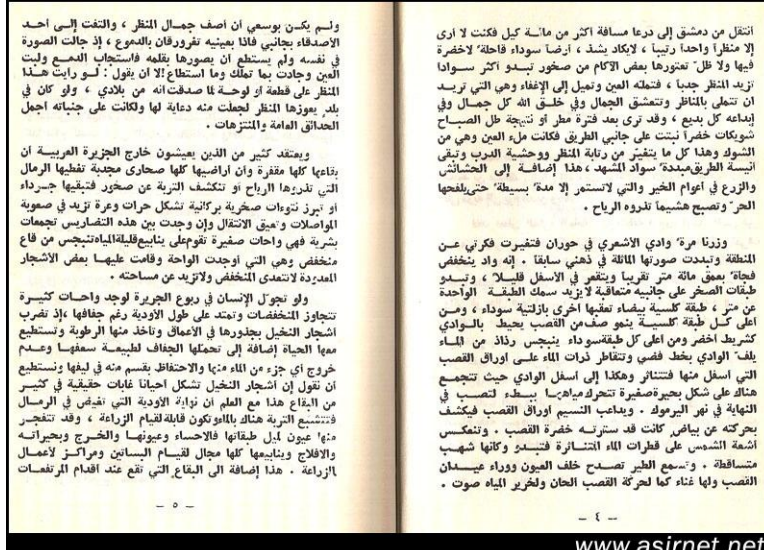 انتقل من دمشق إلى درعا مسافة أكثر من مائة كيل فكنت لا أرى
إلا منظراً واحداً رتيباً ، لايكاد يشذ ، أرضاً سوداء قاحلة لاخضرة
فيها ولا ظل تعتورها بعض الآكام من صخور تبدو أكثر سوادا
تزيد المنظر جدباً ، فتمله العين وتميل إلى الإغفاء وهي التي تريد
ان تتملى بالمناظر وتتعشق الجمال وفي خلق الله كل جمال وفي
إبداعه كل بديع ، وقد ترى بعد فترة مطر أو نتيجة طل الصباح
شويكات خضراً نبتت على جانبي الطريق فكانت ملء العين وهي من
الشوك وهذا كل ما يتغير من رتابة المنظر ووحشية الدرب وتبقى
أنيسة الطريق مبددة سواد المشهد ، هذا إضافة إلى الحشائش
والزرع في أعوام الخير والتي لاتستمر إلا مدة بسيطة حتى يلفحها
الحر وتصبح هشيماً تذروه الرياح .
وزرنا مرة وادي الأشعري في حوران فتغيرت فكرتي عن
المنطقة وتبددت صورتها الماثلة في ذهني سابقا . إنه واد ينخفض
فجأة بعمق مائة متر تقريباً ويتقعر في الأسفل قليلا ، وتبدو
طبقات الصخر على جانبيه متعاقبة لايزيد سمك الطبقة الواحدة
عن متر ، طبقة كلسية بيضاء تعقبها أخرى بازلتية سوداء ، ومن
اعلى كل طبقة كلسية ينمو صف من القصب يحيط بالوادي
كشريط أخضر ومن اعلى كل طبقة سوداء ينبجس رذاذ من الماء
يلف الوادي بخط فضي وتتقاطر ذرات الماء على اوراق القصب
التي اسفل منها فتتناثر وهكذا إلى أسفل الوادي حيث تتجمع
هناك على شكل بحيرة صغيرة تتحرك مياهها ببطء لتصب في
النهاية في نهر اليرموك . ويداعب النسيم أوراق القصب فيكشف
بحركته عن بياض كانت قد سترته خضرة القصب . وتنعكس
أشعة الشمس على قطرات الماء المتناثرة فتبدو وكأنها شهب
متساقطة . وتسمع الطير تصدح خلف العيون ووراء عيدان
القصب ولها غناء كما لحركة القصب الحان ولخرير المياه صوت .
ـ ٤ ـ
ولم يكن بوسعي أن أصف جمال المنظر ، والتفت إلى أحد
الأصدقاء بجانبي فاذا بعينيه تغرورقان بالدموع ، إذ جالت الصورة
في نفسه ولم يستطع ان يصورها بقلمه فاستجاب الدمع ولبت
العين وجادت بما تملك وما استطاع إلا أن يقول : لو رايت هذا
المنظر على قطعة أو لوحة لما صدقت انه من بلادي ، ولو كان في
بلد يعوزها المنظر لجعلت منه دعاية لها ولكانت على جنباته اجمل
الحدائق العامة والمنتزهات .
ويعتقد كثير من الذين يعيشون خارج الجزيرة العربية أن
بقاعها كلها مقفرة وأن اراضيها كلها صحارى مجدبة تغطيها الرمال
التي تذروها الرياح أو تنكشف التربة عن صخور فتبقيها جرداء
أو تبرز نتوءات صخرية بركانية تشكل حرات وعرة تزيد في صعوبة
المواصلات وتعيق الانتقال وإن وجدت بين هذه التضاريس تجمعات
بشرية فهي واحات صغيرة تقوم على ينابيع قليلة المياه تنبجس من قاع
منخفض وهي التي أوجدت الواحة وقامت عليها بعض الأشجار
المعدودة لاتتعدى المنخفض ولاتزيد عن مساحته .
ولو تجول الإنسان في ربوع الجزيرة لوجد واحات كثيرة
تتجاوز المنخفضات وتمتد على طول الأودية رغم جفافها ، إذ تضرب
اشجار النخيل بجذورها في الأعماق وتأخذ منها الرطوبة وتستطيع
معها الحياة إضافة إلى تحملها الجفاف لطبيعة سعفها وعدم
خروج أي جزء من الماء منها والاحتفاظ بقسم منه في ليفها ونستطيع
أن نقول إن أشجار النخيل تشكل احيانا غابات حقيقية في كثير
من البقاع هذا مع العلم أن نهاية الأودية التي تفيض في الرمال
فتتشبع التربة هناك بالماء وتكون قابلة لقيام الزراعة ، وقد تتفجر
منها عيون لميل طبقاتها فالاحساء وعيونها والخرج وبحيراته
والافلاج وينابيعها كلها مجال لقيام البساتين ومراكز لأعمال
الزراعة . هذا إضافة الى البقاع التي تقع عند اقدام المرتفعات
ـ ٥ ـ
www.asirnet.net